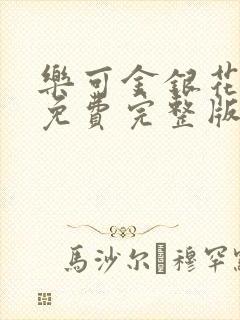 樂可金銀花
免費完整版
馬沙尔穆罕